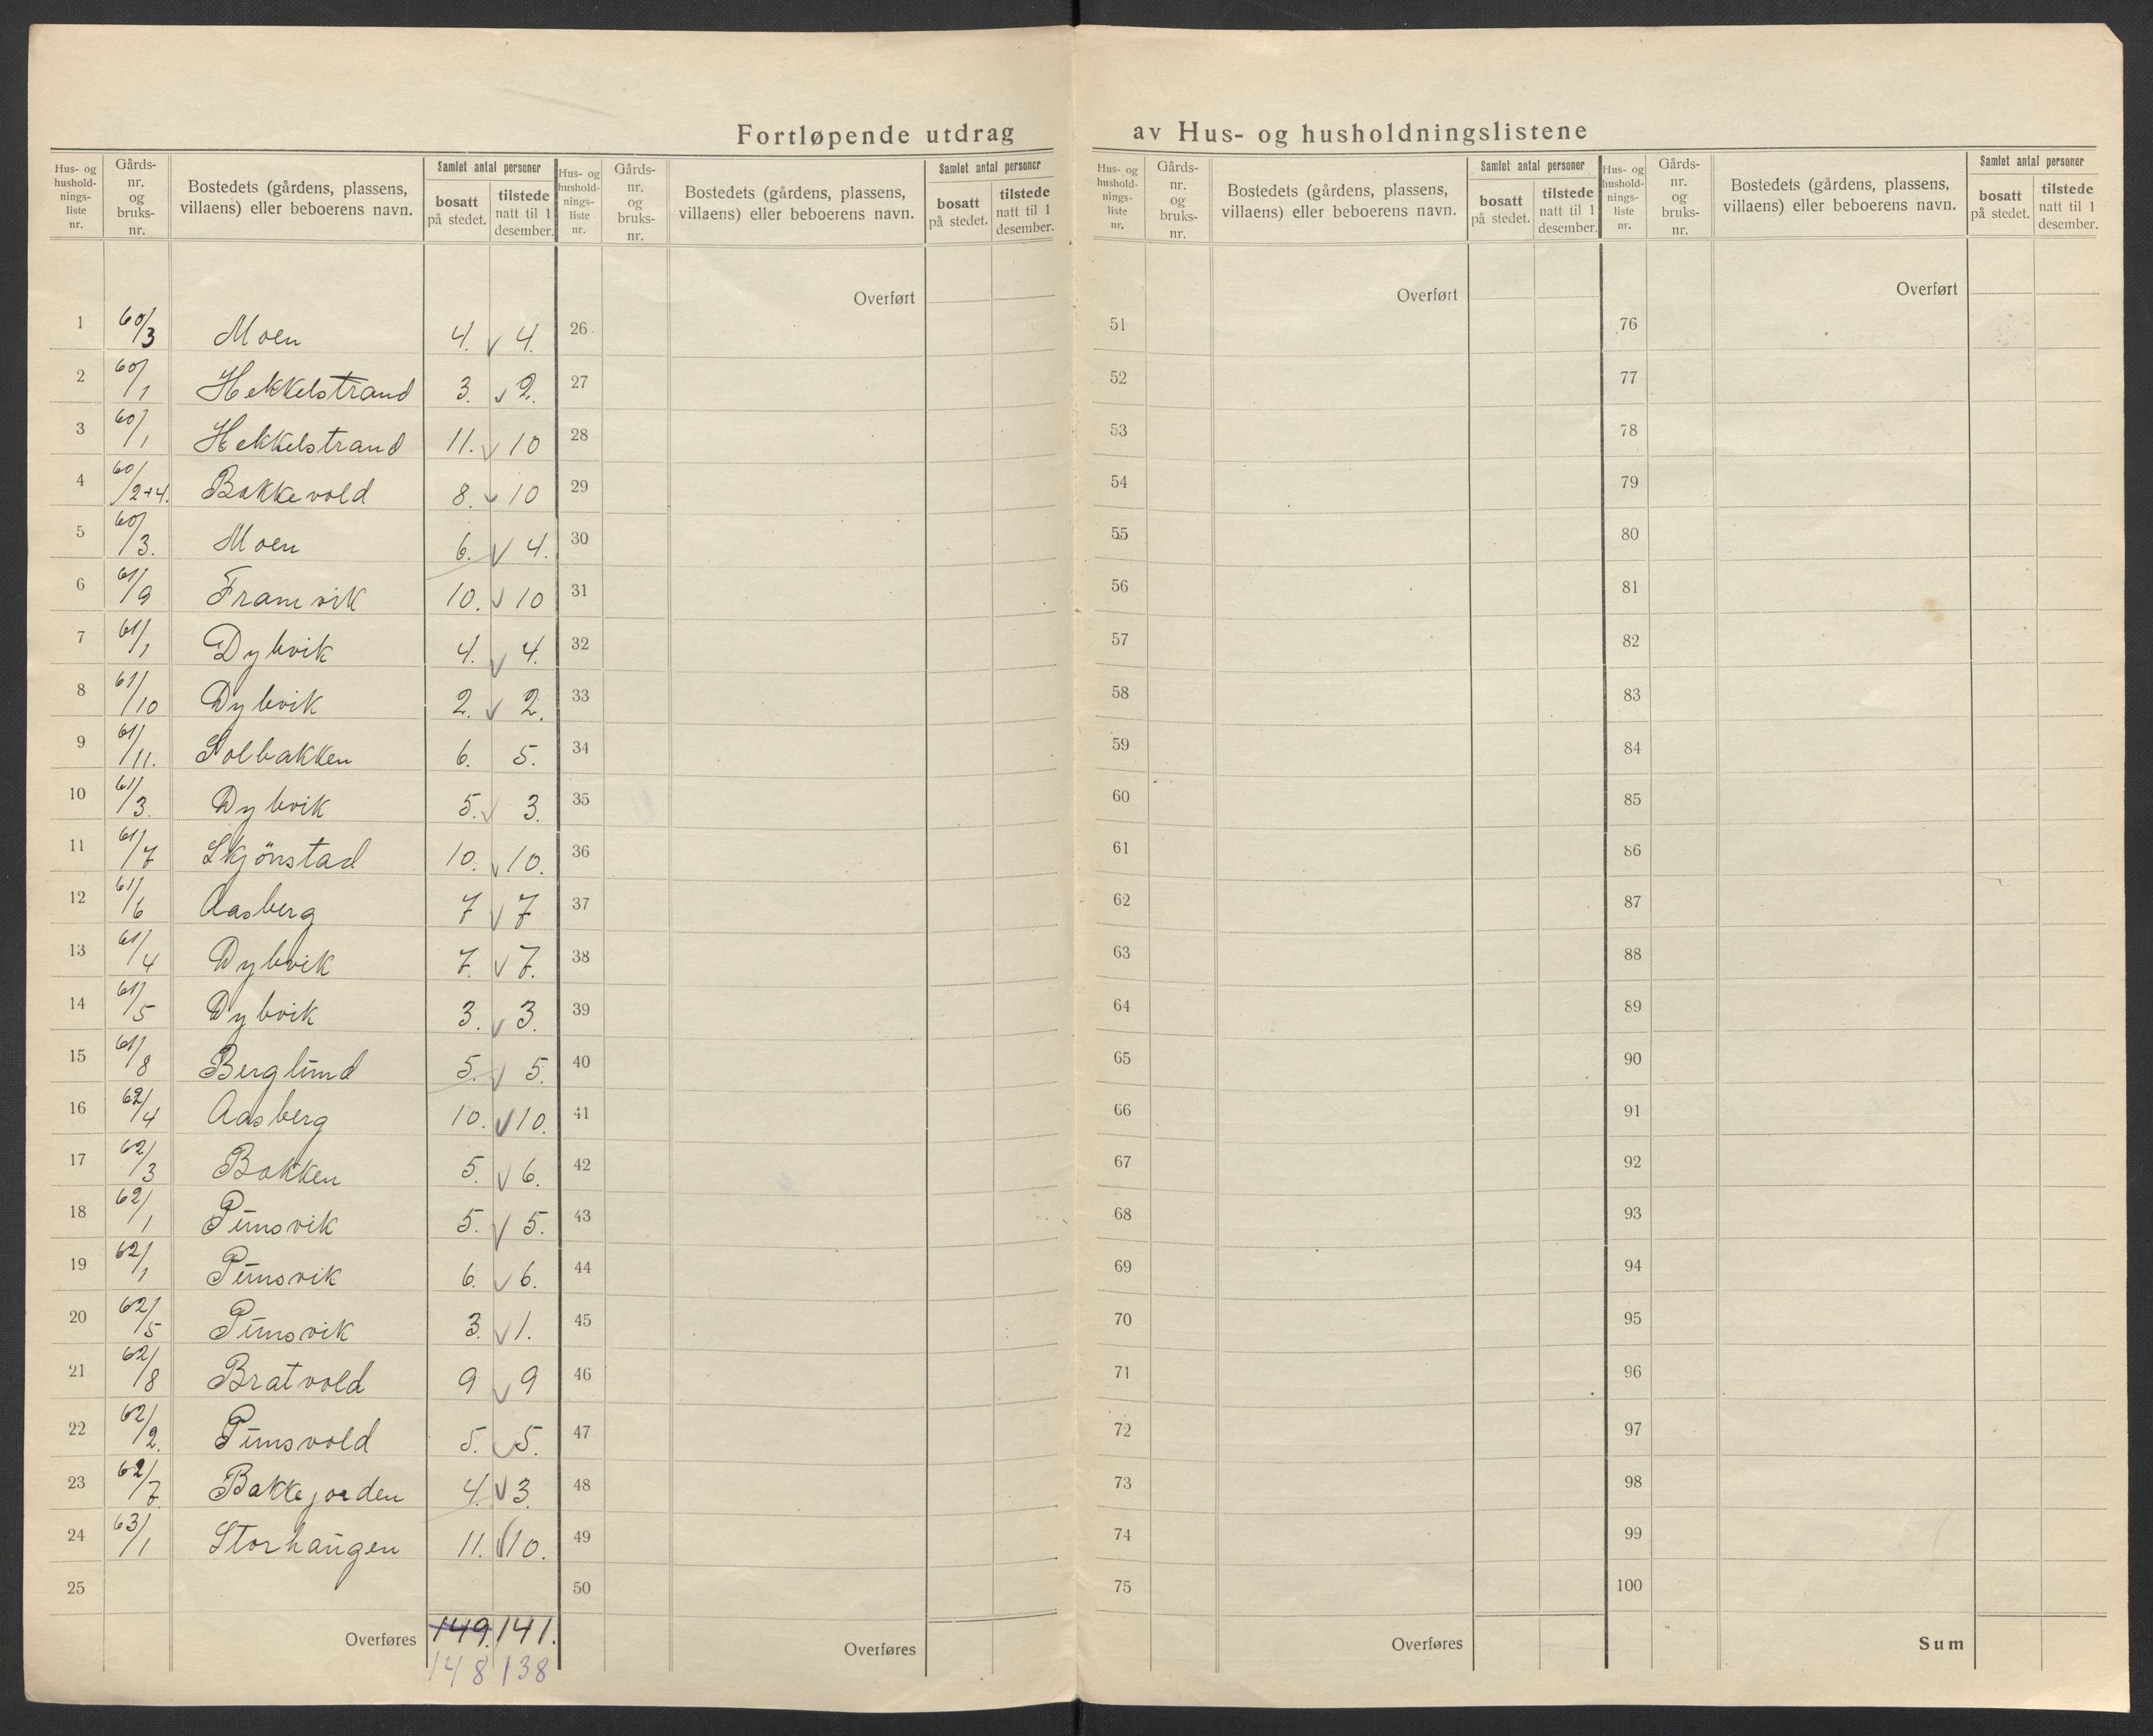 Fortløpende utdrag av Hus- og husholdningslistene
Hus- og husholdnings- liste nr. | Gårds- nr. og bruks- nr. | Bostedets (gårdens, plassens, villaens) eller beboerens navn. | Samlet antal personer | bosatt på stedet. | tilstede natt til 1 desember.
Hus- og husholdnings- liste nr. | Gårds- nr. og bruks- nr. | Bostedets (gårdens, plassens, villaens) eller beboerens navn. | Samlet antal personer | bosatt på stedet. | tilstede natt til 1 desember.
Hus- og husholdnings- liste nr. | Gårds- nr. og bruks- nr. | Bostedets (gårdens, plassens, villaens) eller beboerens navn. | Samlet antal personer | bosatt på stedet. | tilstede natt til 1 desember.
Hus- og husholdnings- liste nr. | Gårds- nr. og bruks- nr. | Bostedets (gårdens, plassens, villaens) eller beboerens navn. | Samlet antal personer | bosatt på stedet. | tilstede natt til 1 desember.
Overført Overført Overført
1 60/3 Moen 4. v 4. 26 51 76
2 60/1 Hekkelstrand 3. v 2. 27 52 77
3 60/1 Hekkelstrand 11. v 10 28 53 78
4 60/2+4. Bakkevold 8. v 10 29 54 79
5 60/3. Moen 6. v 4. 30 55 80
6 61/9 Framvik 10. v 10 31 56 81
7 61/1 Dybvik 4. v 4. 32 57 82
8 61/10 Dybvik 2. v 2. 33 58 83
9 61/11. Solbakken 6. 5. 34 59 84
10 61/3. Dybvik 5. v 3. 35 60 85
11 61/7 Skjönstad 10. v 10. 36 61 86
12 61/6 Aasberg 7 v 7 37 62 87
13 61/4 Dybvik 7. v 7. 38 63 88
14 61/5 Dybvik 3. v 3. 39 64 89
15 61/8 Berglund 5. v 5. 40 65 90
16 62/4 Aasberg 10. v 10. 41 66 91
17 62/3 Bakken 5. v 6. 42 67 92
18 62/1 Pünsvik 5. v 5. 43 68 93
19 62/1 Pünsvik 6. v 6. 44 69 94
20 62/5 Pünsvik 3. v 1. 45 70 95
21 62/8 Bratvold 9 v 9 46 71 96
22 62/2. Pünsvold 5. v 5. 47 72 97
23 62/7. Bakkejorden 4. v 3. 48 73 98
24 63/1 Storhaugen 11. v 10. 49 74 99
25 50 75 100
Overføres 149. 141. Overføres Overføres Sum
148 138